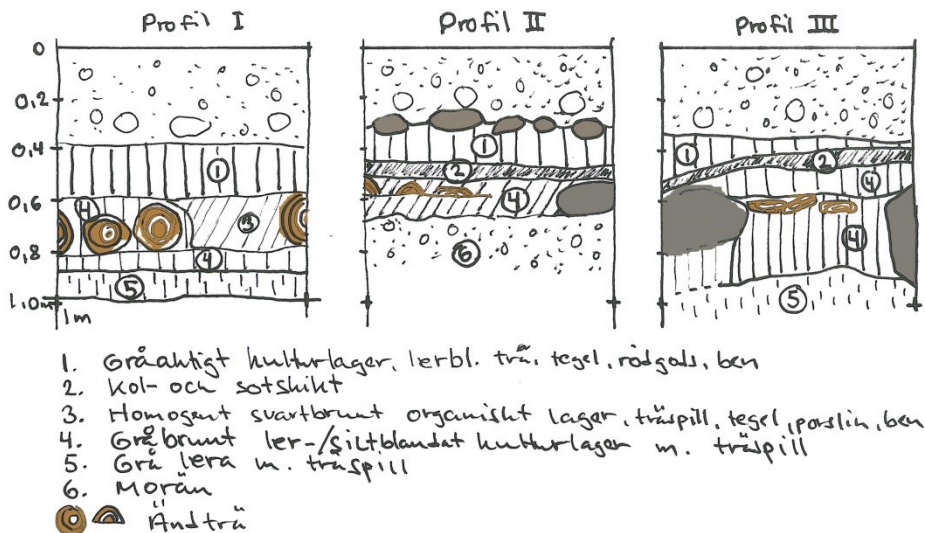 Profil I Profil II Profil III
0
0,2
0,4
0,6
0,8
1,0m
1m
1
4
6
3
4
5
1
2
4
6
1
2
4
4
5
1. Gråaktigt kulturlager, lerbl. trä, tegel, rödgods, ben
2. Kol- och sotskikt
3. Homogent svartbrunt organiskt lager, träspill, tegel, porslin, ben
4. Gråbrunt ler-/siltblandat kulturlager m. träspill
5. Grå lera m. träspill
6. Morän
Ändträ